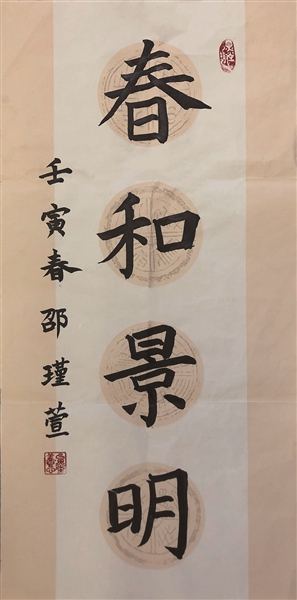 春和景明
壬寅春邵瑾萱